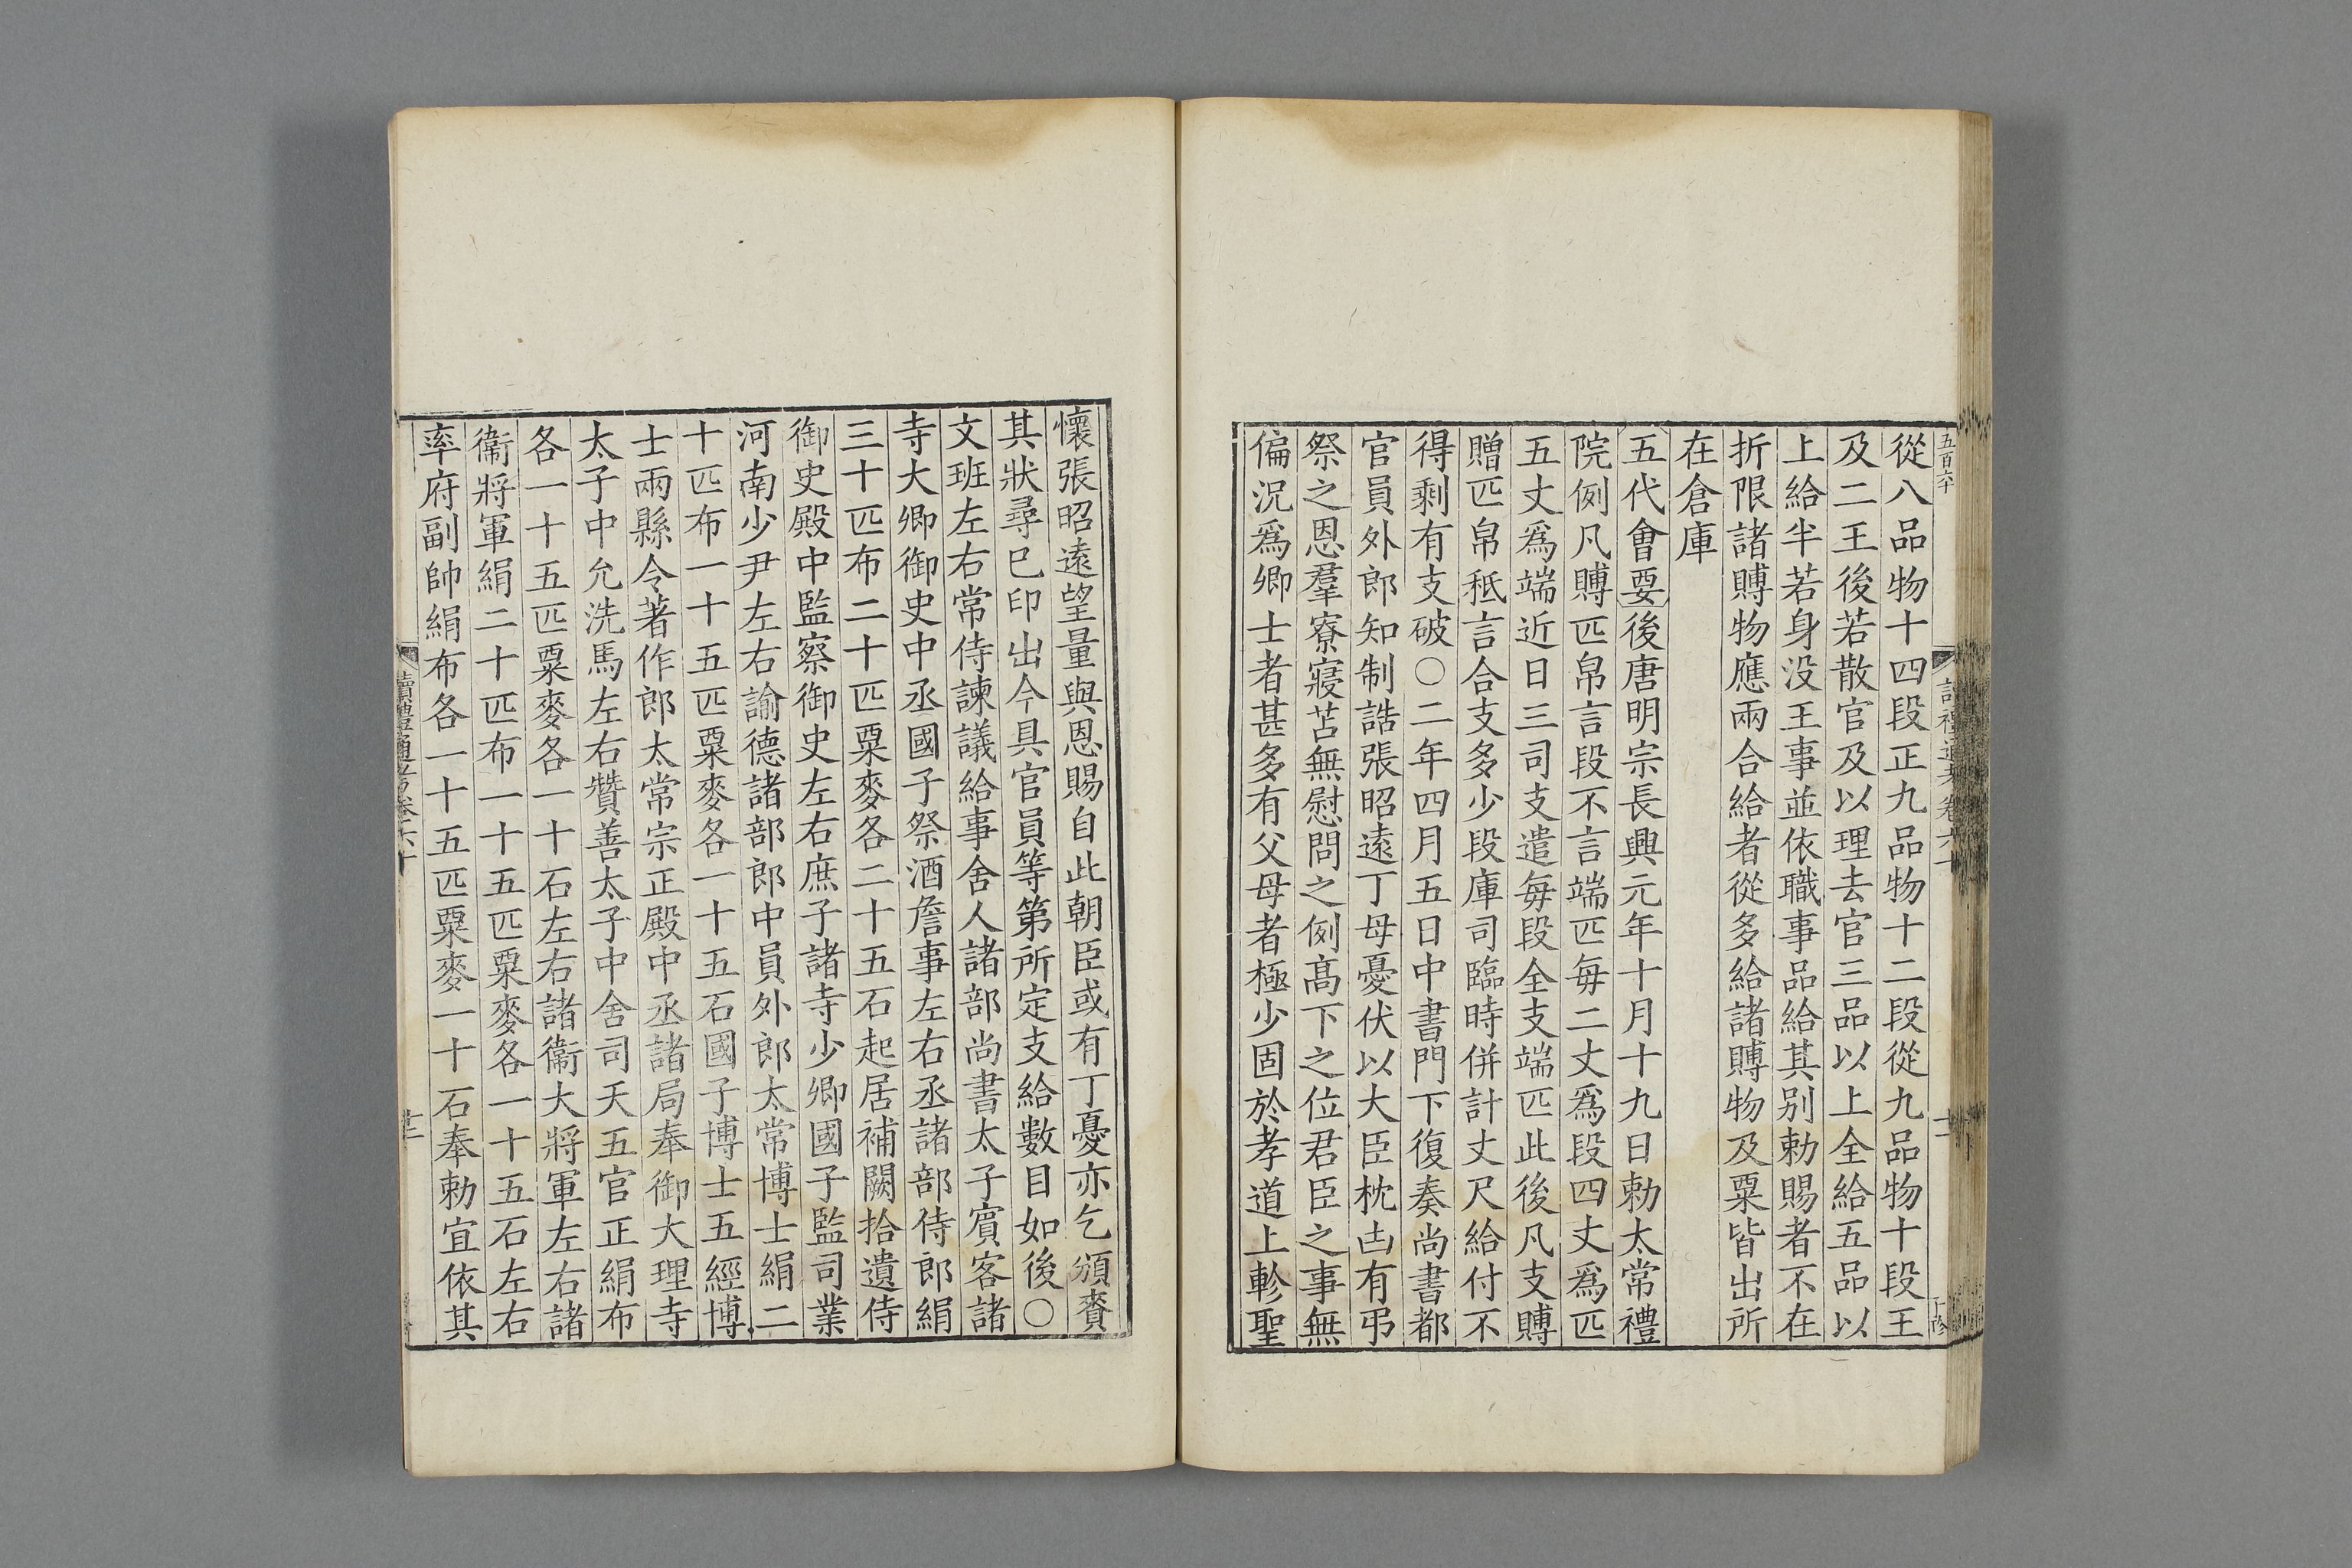 從八品物十四段正九品物十二段從九品物十段王
及二王後若散官及以理去官三品以上全給五品以
上給半若身没王事並依職事品給其别勅賜者不在
折限諸賻物應兩合給者從多給諸賻物及粟皆出所
在倉庫
五代會要後唐明宗長興元年十月十九日勅太常禮
院例凡賻匹帛言段不言端匹每二丈爲段四丈爲匹
五丈爲端近日三司支遣每段全支端匹此後凡支賻
贈匹帛秪言合支多少段庫司臨時併計丈尺給付不
得剩有支破〇二年四月五日中書門下復奏尚書都
官員外郎知制誥張昭遠丁母憂伏以大臣枕凷有弔
祭之恩羣寮寢苫無慰問之例髙下之位君臣之事無
偏况爲卿士者甚多有父母者極少固於孝道上軫聖
懷張昭遠望量與恩賜自此朝臣或有丁憂亦乞頒賚
其狀尋已印出今具官員等第所定支給數目如後〇
文班左右常侍諫議給事舍人諸部尚書太子賓客諸
寺大卿御史中丞國子祭酒詹事左右丞諸部侍郎絹
三十匹布二十匹粟麥各二十五石起居補闕拾遺侍
御史殿中監察御史左右庶子諸寺少卿國子監司業
河南少尹左右諭德諸部郎中員外郎太常博士絹二
十匹布一十五匹粟麥各一十五石國子博士五經博
士兩縣令著作郎太常宗正殿中丞諸局奉御大理寺
太子中允洗馬左右贊善太子中舍司天五官正絹布
各一十五匹粟麥各一十石左右諸衞大將軍左右諸
衞將軍絹二十匹布一十五匹粟麥各一十五石左右
率府副帥絹布各一十五匹粟麥一十石奉勅宜依其
讀禮通考卷六十